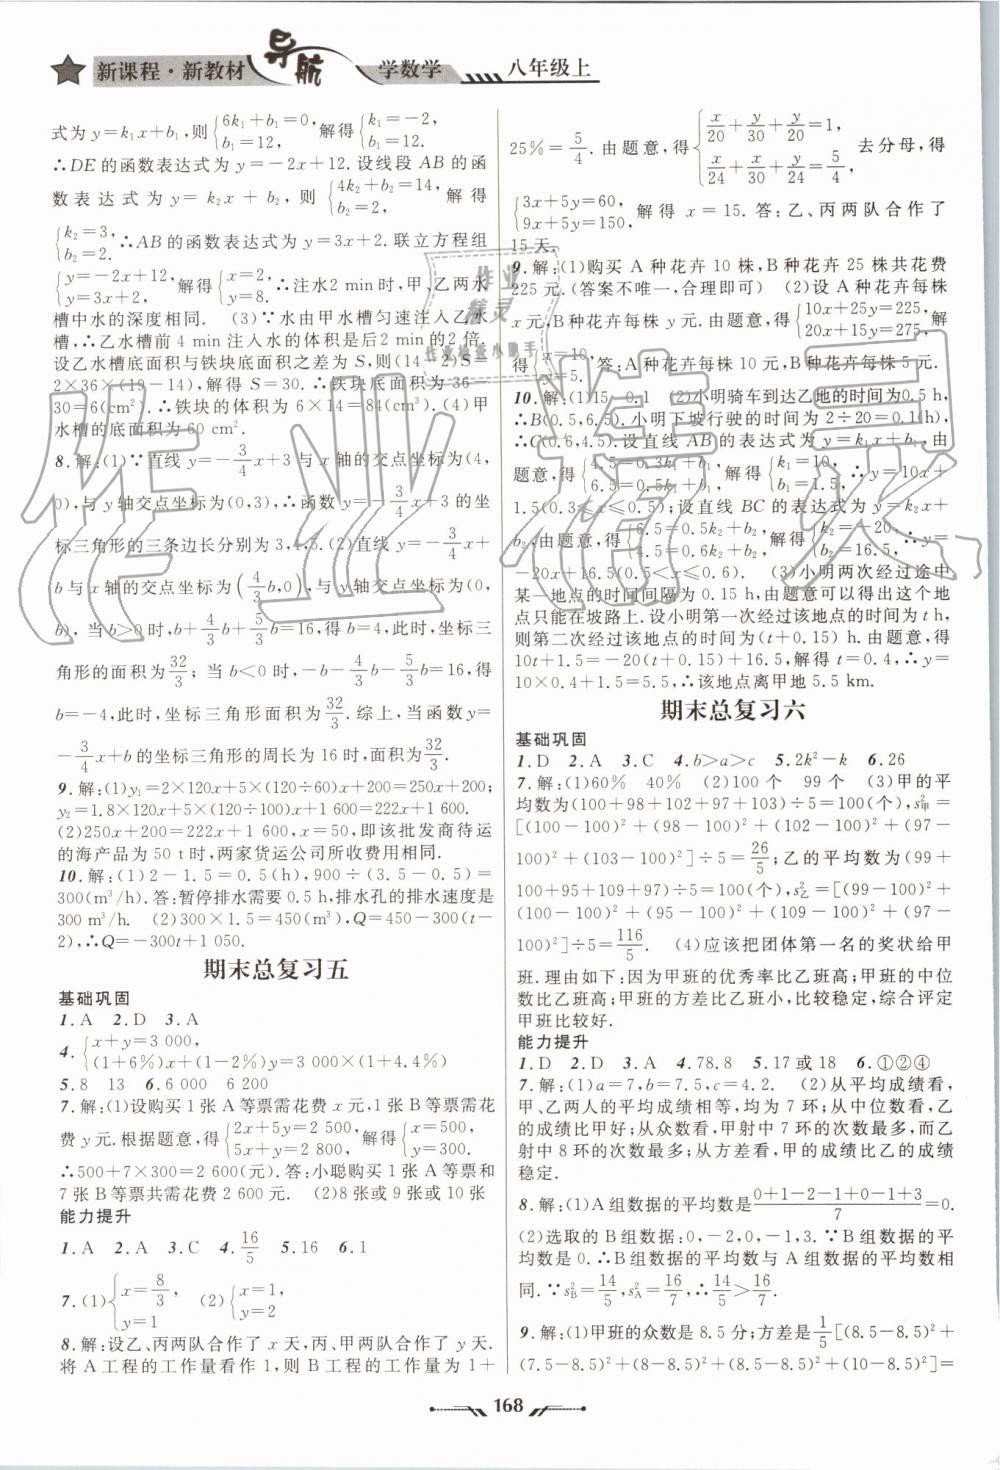 新课程·新教材 导航 学数学 八年级上
式为y=k₁x+b₁,则{6k₁+b₁=0, b₁=12, 解得{k₁=-2, b₁=12.
∴DE的函数表达式为y=-2x+12.设线段AB的函
数表达式为y=k₂x+b₂,则{4k₂+b₂=14, b₂=2, 解得
{k₂=3, b₂=2. ∴AB的函数表达式为y=3x+2.联立方程组
{y=-2x+12, y=3x+2, 解得{x=2, y=8. ∴注水2 min时,甲、乙两水
槽中水的深度相同. (3)∵水由甲水槽匀速注入乙水
槽,∴乙水槽前4 min注入水的体积是后2 min的2倍.
设乙水槽底面积与铁块底面积之差为S,则(14-2)S=
2×36×(19-14),解得S=30.∴铁块底面积为36-
30=6(cm²).∴铁块的体积为6×14=84(cm³).(4)甲
水槽的底面积为60 cm².
8.解:(1)∵直线y=-3/4x+3与x轴的交点坐标为(4,
0),与y轴交点坐标为(0,3),∴函数y=-3/4x+3的坐
标三角形的三条边长分别为3,4,5.(2)直线y=-3/4x+
b与x轴的交点坐标为(4/3b,0),与y轴交点坐标为(0,
b),当b>0时,b+4/3b+5/3b=16,得b=4,此时,坐标三
角形的面积为32/3;当b<0时,-b-4/3b-5/3b=16,得
b=-4,此时,坐标三角形面积为32/3.综上,当函数y=
-3/4x+b的坐标三角形的周长为16时,面积为32/3.
9.解:(1)y₁=2×120x+5×(120÷60)x+200=250x+200,
y₂=1.8×120x+5×(120÷100)x+1 600=222x+1 600.
(2)250x+200=222x+1 600,x=50,即该批发商待运
的海产品为50 t时,两家货运公司所收费用相同.
10.解:(1)2-1.5=0.5(h),900÷(3.5-0.5)=
300(m³/h).答:暂停排水需要0.5 h,排水孔的排水速度是
300 m³/h. (2)300×1.5=450(m³),Q=450-300(t-
2),∴Q=-300t+1 050.
期末总复习五
基础巩固
1.A 2.D 3.A
4.{x+y=3 000, (1+6%)x+(1-2%)y=3000×(1+4.4%)
5.8 13 6.6 000 6 200
7.解:(1)设购买1张A等票需花费x元,1张B等票需花
费y元.根据题意,得{2x+5y=2 500, 5x+2y=3 500, 解得{x=500, y=300.
∴500+7×300=2 600(元).答:小聪购买1张A等票和
7张B等票共需花费2 600元. (2)8张或9张或10张
能力提升
1.A 2.A 3.C 4.16/5 5.16 6.1
7.(1){x=8/3, y=1 (2){x=1, y=2
8.解:设乙、丙两队合作了x天,丙、甲两队合作了y天.
将A工程的工作量看作1,则B工程的工作量为1+
25%=5/4.由题意,得{x/20+y/30+y/20=1, x/24+x/30+y/24=5/4, 去分母,得
{3x+5y=60, 9x+5y=150, 解得x=15.答:乙、丙两队合作了
15天.
9.解:(1)购买A种花卉10株,B种花卉25株共花费
225元.(答案不唯一,合理即可) (2)设A种花卉每株
x元,B种花卉每株y元.由题意,得{10x+25y=225, 20x+15y=275, 解
得{x=10, y=5. 答:A种花卉每株10元,B种花卉每株5元.
10.解:(1)15 0.1 (2)小明骑车到达乙地的时间为0.5 h,
∴B(0.5,6.5).小明下坡行驶的时间为2÷20=0.1(h),
∴C(0.6,4.5).设直线AB的表达式为y=k₁x+b₁,由
题意,得{4.5=0.3k₁+b₁, 6.5=0.5k₁+b₁, 解得{k₁=10, b₁=1.5, ∴y=10x+
1.5(0.3≤x≤0.5);设直线BC的表达式为y=k₂x+
b₂,由题意,得{6.5=0.5k₂+b₂, 4.5=0.6k₂+b₂, 解得{k₂=-20, b₂=16.5, ∴y=
-20x+16.5(0.5<x≤0.6). (3)小明两次经过途中
某一地点的时间间隔为0.15 h,由题意可以得出这个地
点只能在坡路上.设小明第一次经过该地点的时间为t h,
则第二次经过该地点的时间为(t+0.15) h.由题意,得
10t+1.5=-20(t+0.15)+16.5,解得t=0.4,∴y=
10×0.4+1.5=5.5,∴该地点离甲地5.5 km.
期末总复习六
基础巩固
1.D 2.A 3.C 4.b>a>c 5.2k²-k 6.26
7.解:(1)60% 40% (2)100个 99个 (3)甲的平
均数为(100+98+102+97+103)÷5=100(个),s²甲=
[(100-100)²+(98-100)²+(102-100)²+(97-
100)²+(103-100)²]÷5=26/5;乙的平均数为(99+
100+95+109+97)÷5=100(个),s²乙=[(99-100)²+
(100-100)²+(95-100)²+(109-100)²+(97-
100)²]÷5=116/5. (4)应该把团体第一名的奖状给甲
班.理由如下:因为甲班的优秀率比乙班高;甲班的中位
数比乙班高;甲班的方差比乙班小,比较稳定,综合评定
甲班比较好.
能力提升
1.D 2.D 3.A 4.78.8 5.17或18 6.①②④
7.解:(1)a=7,b=7.5,c=4.2. (2)从平均成绩看,
甲、乙两人的平均成绩相等,均为7环;从中位数看,乙
的成绩比甲好;从众数看,甲射中7环的次数最多,而乙
射中8环的次数最多;从方差看,甲的成绩比乙的成绩
稳定.
8.解:(1)A组数据的平均数是(0+1-2-1+0-1+3)/7=0.
(2)选取的B组数据:0,-2,0,-1,3.∵B组数据的平
均数是0.∴B组数据的平均数与A组数据的平均数相
同.∵s²B=14/5,s²A=16/7,∴14/5>16/7.
9.解:(1)甲班的众数是8.5分;方差是1/5[(8.5-8.5)²+
(7.5-8.5)²+(8-8.5)²+(8.5-8.5)²+(10-8.5)²]=
168
作业精灵
作业精灵
作业检查小助手